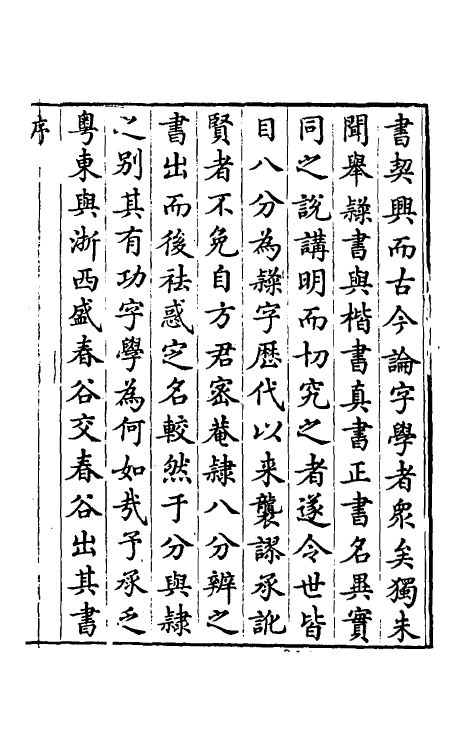 書契興而古今論字學者衆矣獨未
聞舉隸書與楷書真書正書名異實
同之說講明而切究之者遂令世皆
目八分為隸字歷代以来襲謬承訛
賢者不免自方君密菴隷八分辨之
書出而後祛惑定名較然于分與隷
之別其有功字學為何如㢤予承乏
粵東與浙西盛春谷交春谷出其書
序